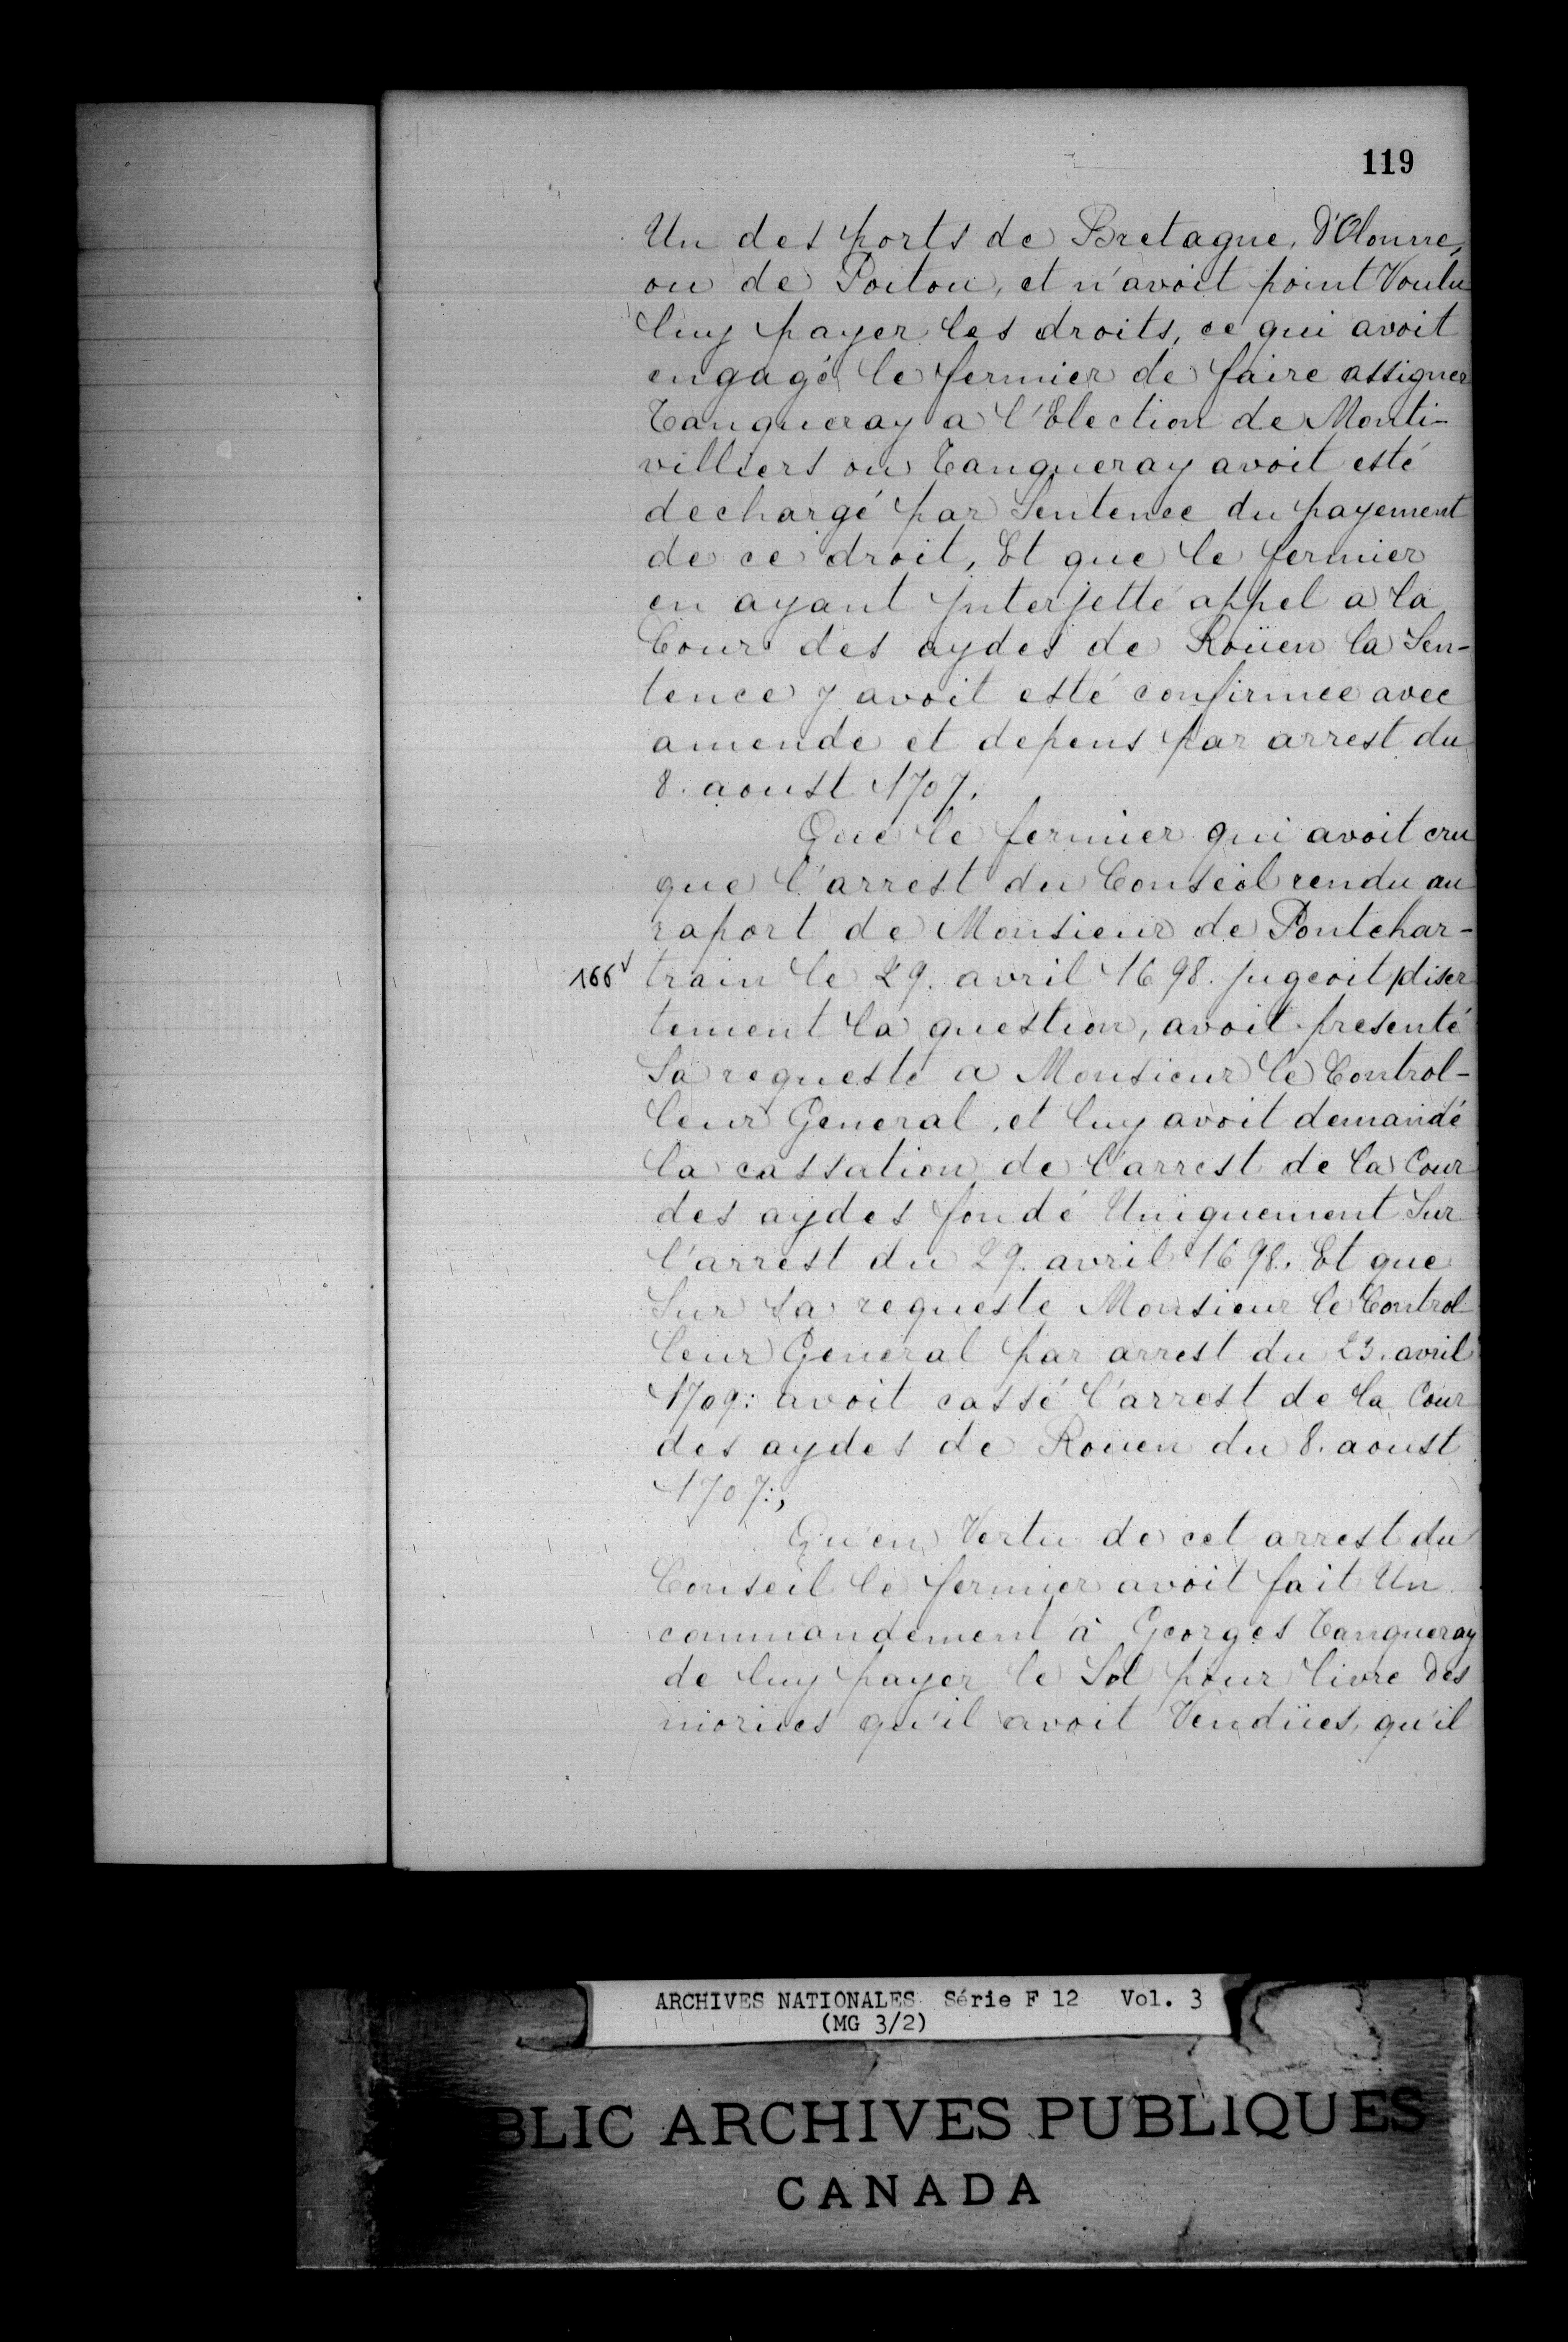 119
Un des ports de Bretagne, d'Olonne,
ou de Poitou, et n'avoit point Voulu
luy payer les droits, ce qui avoit
engagé le fermier de faire assigner
Tanqueray a l'Election de Monti-
villiers ou Tanqueray avoit esté
dechargé par Sentence du payement
de ce droit, Et que le fermier
en ayant jnterjetté appel a la
Cour des aydes de Roüen la Sen-
tence y avoit esté confirmée avec
amende et depens par arrest du
8. aoust 1707.
Que le fermier qui avoit cru
que l'arrest du Conseil rendu au
raport de Monsieur de Pontchar-
166v train le 29. avril 1698. jugeoit diser
tement la question, avoit presenté
Sa requeste a Monsieur le Control-
leur General, et luy avoit demandé
la cassation de l'arrest de la Cour
des aydes fondé Uniquement Sur
l'arrest du 29. avril 1698. Et que
Sur sa requeste Monsieur le Control-
leur General par arrest du 23. avril
1709: avoit cassé l'arrest de la Cour
des aydes de Rouen du 8. aoust
1707:,
Qu'en Vertu de cet arrest du
Conseil le fermier avoit fait Un
commandement à Georges Tanqueray
de luy payer le Sol pour livre des
moriies qu'il avoit Vendües, qu'il
ARCHIVES NATIONALES Série F 12 Vol. 3
(MG 3/2)
BLIC ARCHIVES PUBLIQUES
CANADA